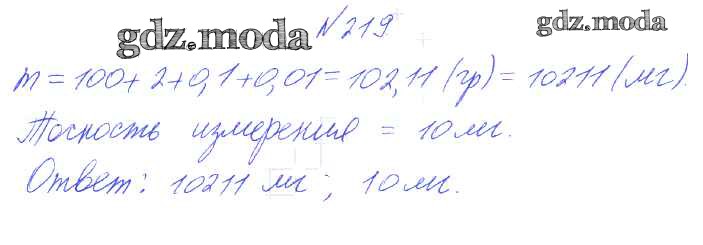 gdz.moda №219 gdz.moda
m = 100 + 2 + 0,1 + 0,01 = 102,11 (гр) = 10211 (мг).
Тосность измерения = 10 мг.
Ответ: 10211 мг; 10 мг.